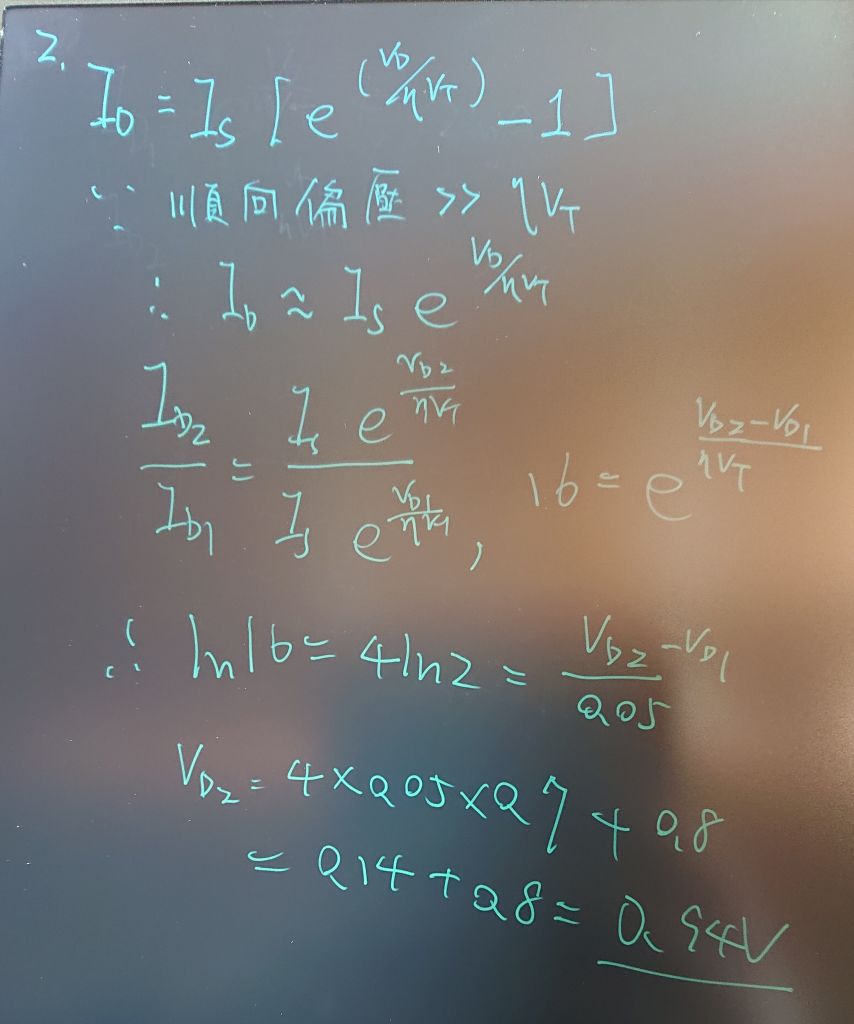 2.
I_D = I_S [ e^(V_D/ηV_T) - 1 ]
∵ 順向偏壓 >> ηV_T
∴ I_D ≈ I_S e^(V_D/ηV_T)
I_D2/I_D1 = I_S e^(V_D2/ηV_T) / I_S e^(V_D1/ηV_T) , 16 = e^((V_D2-V_D1)/ηV_T)
∴ ln16 = 4ln2 = (V_D2-V_D1)/0.05
V_D2 = 4×0.05×0.7 + 0.8
= 0.14 + 0.8 = 0.94V